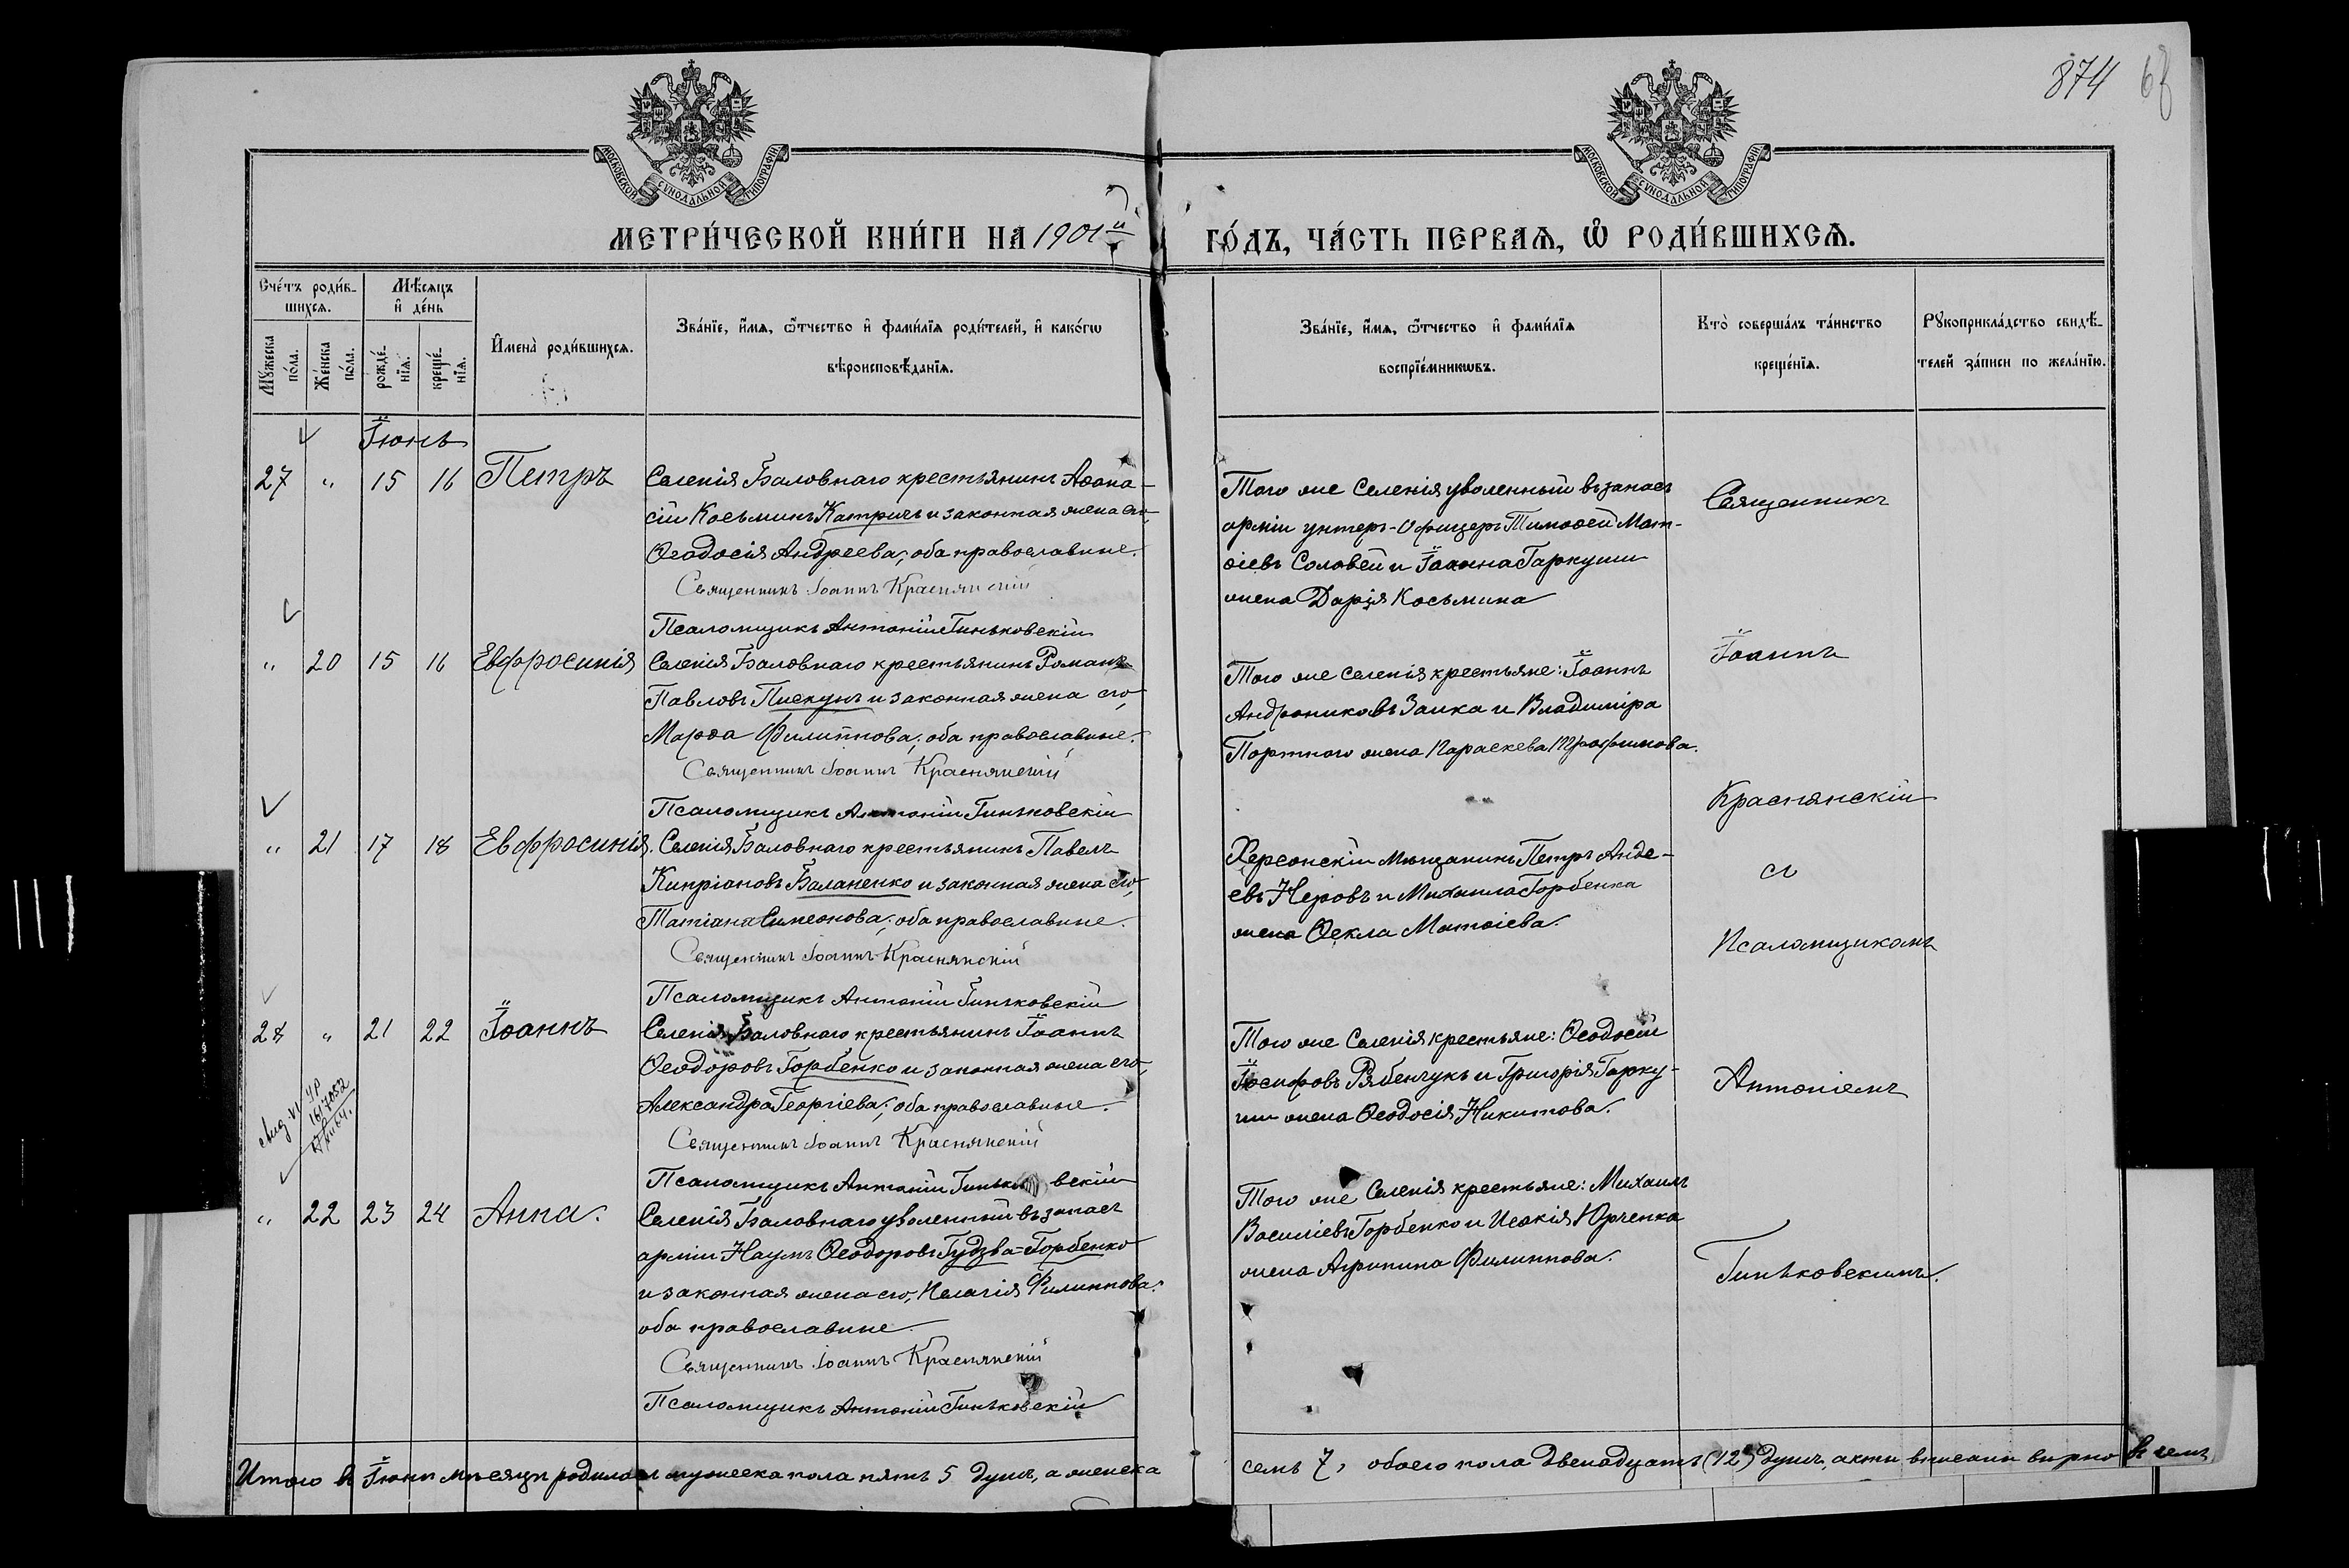 874 68
МОСКОВСКОЙ СѴНОДАЛЬНОЙ ТИПОГРАФІИ
МОСКОВСКОЙ СѴНОДАЛЬНОЙ ТИПОГРАФІИ
МЕТРИ́ЧЕСКОЙ КНИ́ГИ НА 1901й ГО́ДЪ, ЧА́СТЬ ПЕРВАѦ, Ѡ РОДИ́ВШИХСѦ.
Сче́тъ роди́в-
шихсѧ.
Мꙋжеска по́ла.
Же́нска по́ла.
Мѣ́сѧцъ
и҆ де́нь
рожде́-нїѧ.
креще́-нїѧ.
И҆мена̀ роди́вшихсѧ.
Зва́нїе, и҆́мѧ, ѻ҆́тчество и҆ фами́лїѧ роди́телей, и҆ како́гѡ
вѣроисповѣ́данїѧ.
Зва́нїе, и҆́мѧ, ѻ҆́тчество и҆ фами́лїѧ
воспрїе́мникѡвъ.
Кто̀ соверша́лъ та́инство
креще́нїѧ.
Рꙋкоприкла́дство свидѣ́-
телей за́писи по жела́нїю.
Іюнь
27 " 15 16 Петръ
Селенія Баловнаго крестьянинъ Аѳана-
сій Косьминъ Катричъ и законная жена его,
Ѳеодосія Андреева; оба православные.
Священникъ Іоаннъ Краснянскій
Псаломщикъ Антоній Гиньковскій
Того же Селенія уволенный въ запасъ
арміи унтеръ-Офицеръ Тимоѳей Мат-
ѳіевъ Соловей и Іоанна Гаркуши
жена Дарія Косьмина
" 20 15 16 Евфросинія
Селенія Баловнаго крестьянинъ Романъ
Павловъ Пискунъ и законная жена его,
Марѳа Филиппова; оба православные.
Священникъ Іоаннъ Краснянскій
Псаломщикъ Антоній Гиньковскій
Того же селенія крестьяне: Іоаннъ
Андрониковъ Заика и Владиміра
Портного жена Параскева Трофимова.
" 21 17 18 Евфросинія.
Селенія Баловнаго крестьянинъ Павелъ
Кипріановъ Баланенко и законная жена его,
Татіана Симеонова; оба православные.
Священникъ Іоаннъ Краснянскій
Псаломщикъ Антоній Гиньковскій
Херсонскій мѣщанинъ Петръ Анде-
евъ Неровъ и Михаила Горбенка
жена Ѳекла Матѳіева.
28 " 21 22 Іоаннъ
Селенія Баловнаго крестьянинъ Іоаннъ
Ѳеодоровъ Горбенко и законная жена его,
Александра Георгіева; оба православные.
Священникъ Іоаннъ Краснянскій
Псаломщикъ Антоній Гиньковскій
Того же Селенія крестьяне: Ѳеодосій
Іосифовъ Рябенчукъ и Григорія Гарку-
ши жена Ѳеодосія Никитова.
" 22 23 24 Анна.
Селенія Баловнаго уволенный въ запасъ
арміи Наумъ Ѳеодоровъ Гудзва=Горбенко
и законная жена его, Пелагія Филиппова:
оба православные
Священникъ Іоаннъ Краснянскій
Псаломщикъ Антоній Гиньковскій
Того же Селенія крестьяне: Михаилъ
Василіевъ Горбенко и Исакія Юрченка
жена Агрипина Филиппова.
Священникъ
Іоаннъ
Краснянскій
съ
Псаломщикомъ
Антоніемъ
Гиньковскимъ.
Итого въ Іюнѣ мѣсяцѣ родилось мужеска пола пять 5 душъ, а женска
семь 7, обоего пола двенадцать (12) душъ, акты вписаны вѣрно въ чемъ